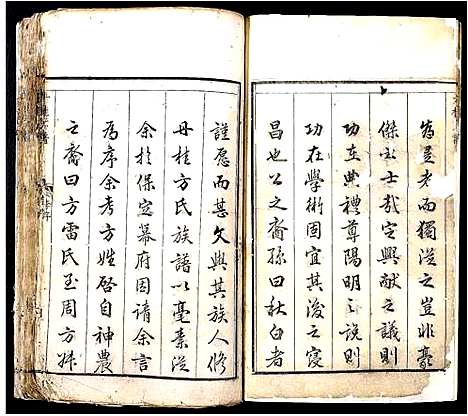 為是者而獨從之豈非豪
傑之士哉定興獻之議則
功在典禮尊陽明之說則
功在學術固宜其後之寖
昌也公之裔孫曰秋白者
謹愿而甚文與其族人修
丹桂方氏族譜以毫素從
余於保定幕府固請余言
為序余考方姓啓自神農
之裔曰方雷氏至周方叔